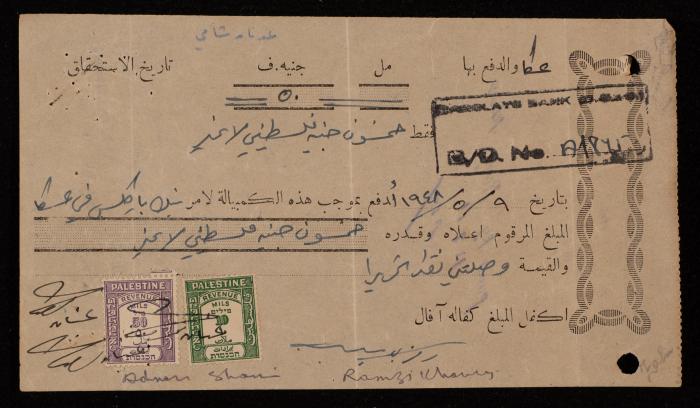 عدنان شامي
عكا والدفع بها
مل
جنيه.ف
تاريخ الاستحقاق
٥٠
BARCLAYS BANK (D.C.&O.)
B/D. No.
فقط خمسون جنيه فلسطيني لا غير
بتاريخ ٩/٥/١٩٤٨ أدفع بموجب هذه الكمبيالة لامر بنك باركلس في عكا
المبلغ المرقوم اعلاه وقدره خمسون جنيه فلسطيني لا غير
والقيمة وصلتني نقدا
اكفل المبلغ كفاله آ فال
PALESTINE
REVENUE
MILS
50
PALESTINE
REVENUE
MILS
عدنان
Adnan Shami
Ramzi Khoury